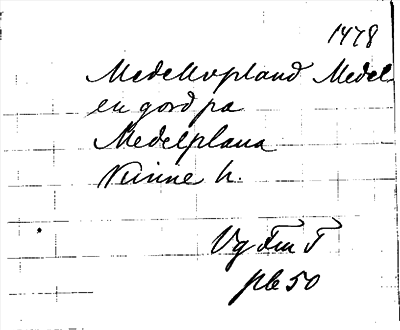 1478
Medelvpland Medel
en gord pa
Medelplana
Kinne h.
Vg Fm T
pb 50